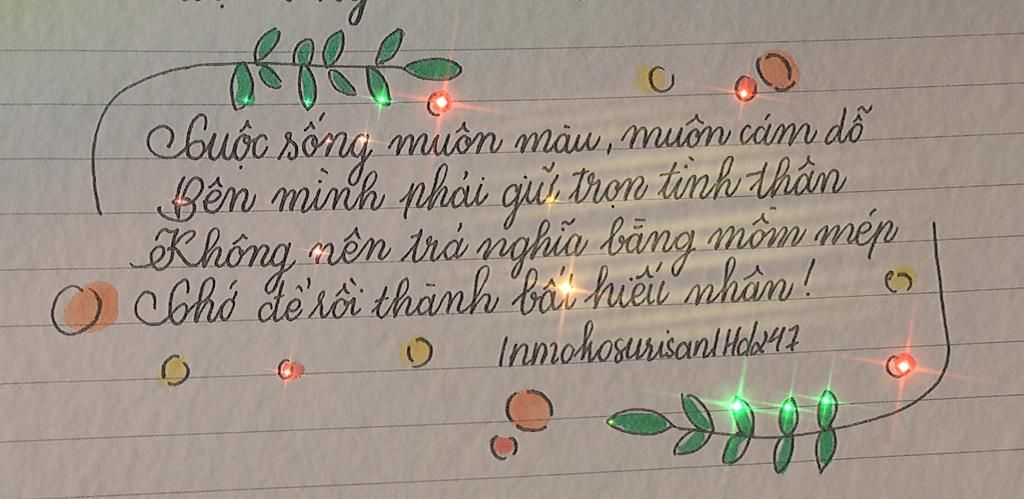 Cuộc sống muôn màu, muôn cám dỗ
Bên mình phải giữ trọn tình thân
Không nên trả nghĩa bằng mồm mép
Chớ để rồi thành bất hiếu nhân!